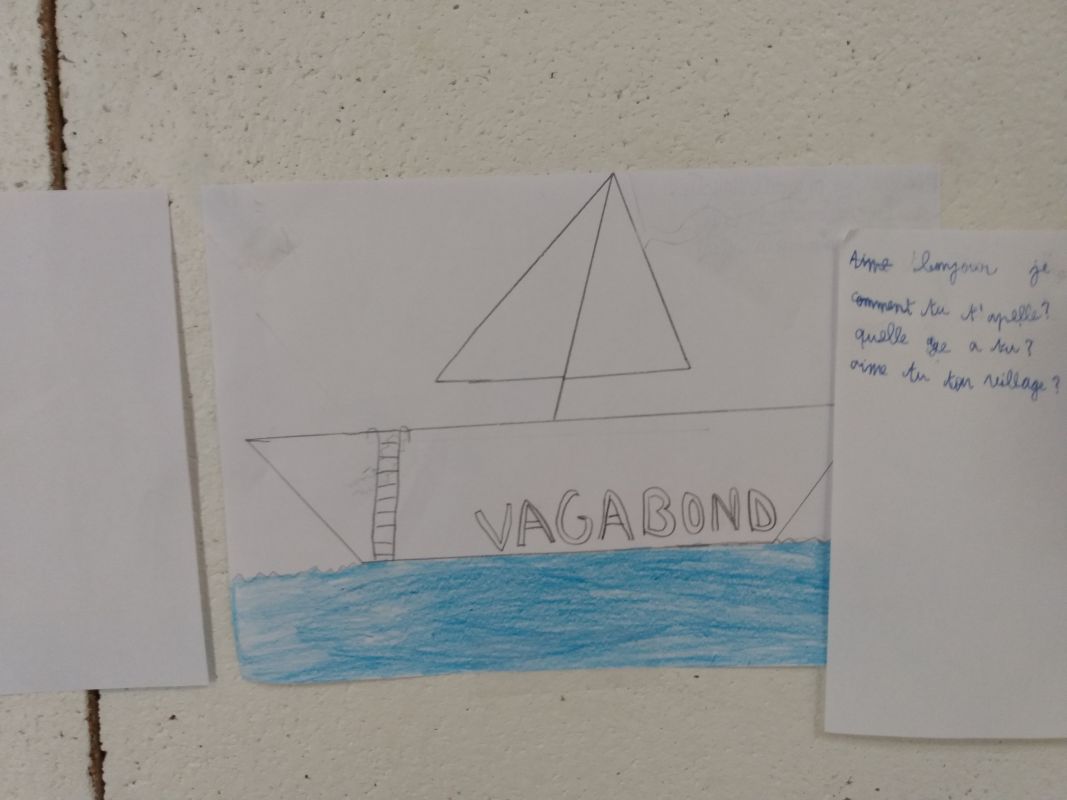 VAGABOND
Aime bonjour je
comment tu t'apelle?
quelle age a tu?
aime tu ton village?